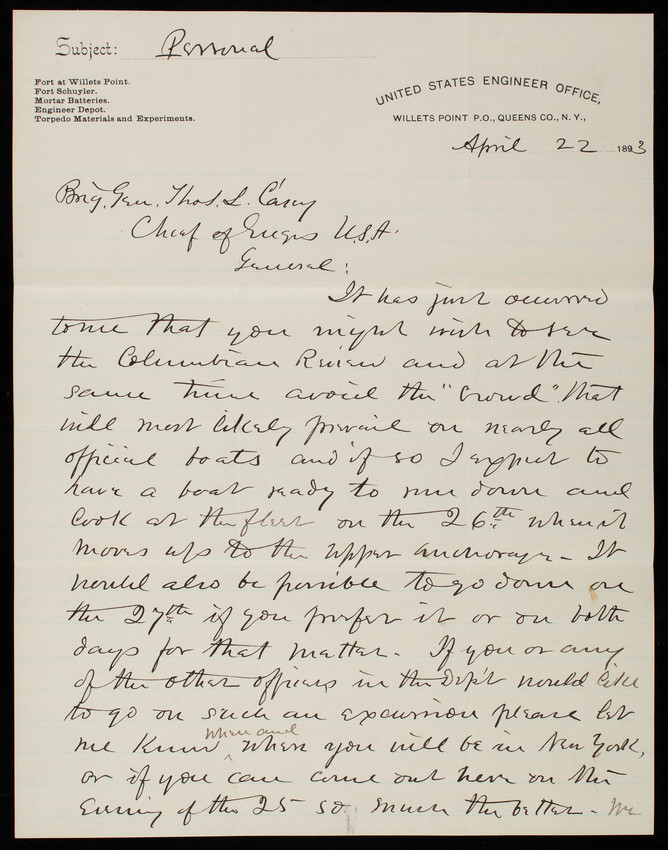 Subject: Personal
Fort at Willets Point.
Fort Schuyler.
Mortar Batteries.
Engineer Depot.
Torpedo Materials and Experiments.
UNITED STATES ENGINEER OFFICE,
WILLETS POINT P.O., QUEENS CO., N. Y.,
April 22 1893
Brig. Gen. Thos. L. Casey
Chief of Engrs U.S.A.
General:
It has just occurred
to me that you might wish to see
the Columbian Review and at the
same time avoid the "crowd" that
will most likely prevail on nearly all
official boats and if so I expect to
have a boat ready to run down and
look at the fleet on the 26th when it
moves up to the upper anchorage - It
would also be possible to go down on
the 27th if you prefer it or on both
days for that matter. If you or any
of the other officers in the Dep't would like
to go on such an excursion please let
me know when and where you will be in New York,
or if you can come out here on the
evening of the 25 so much the better - We